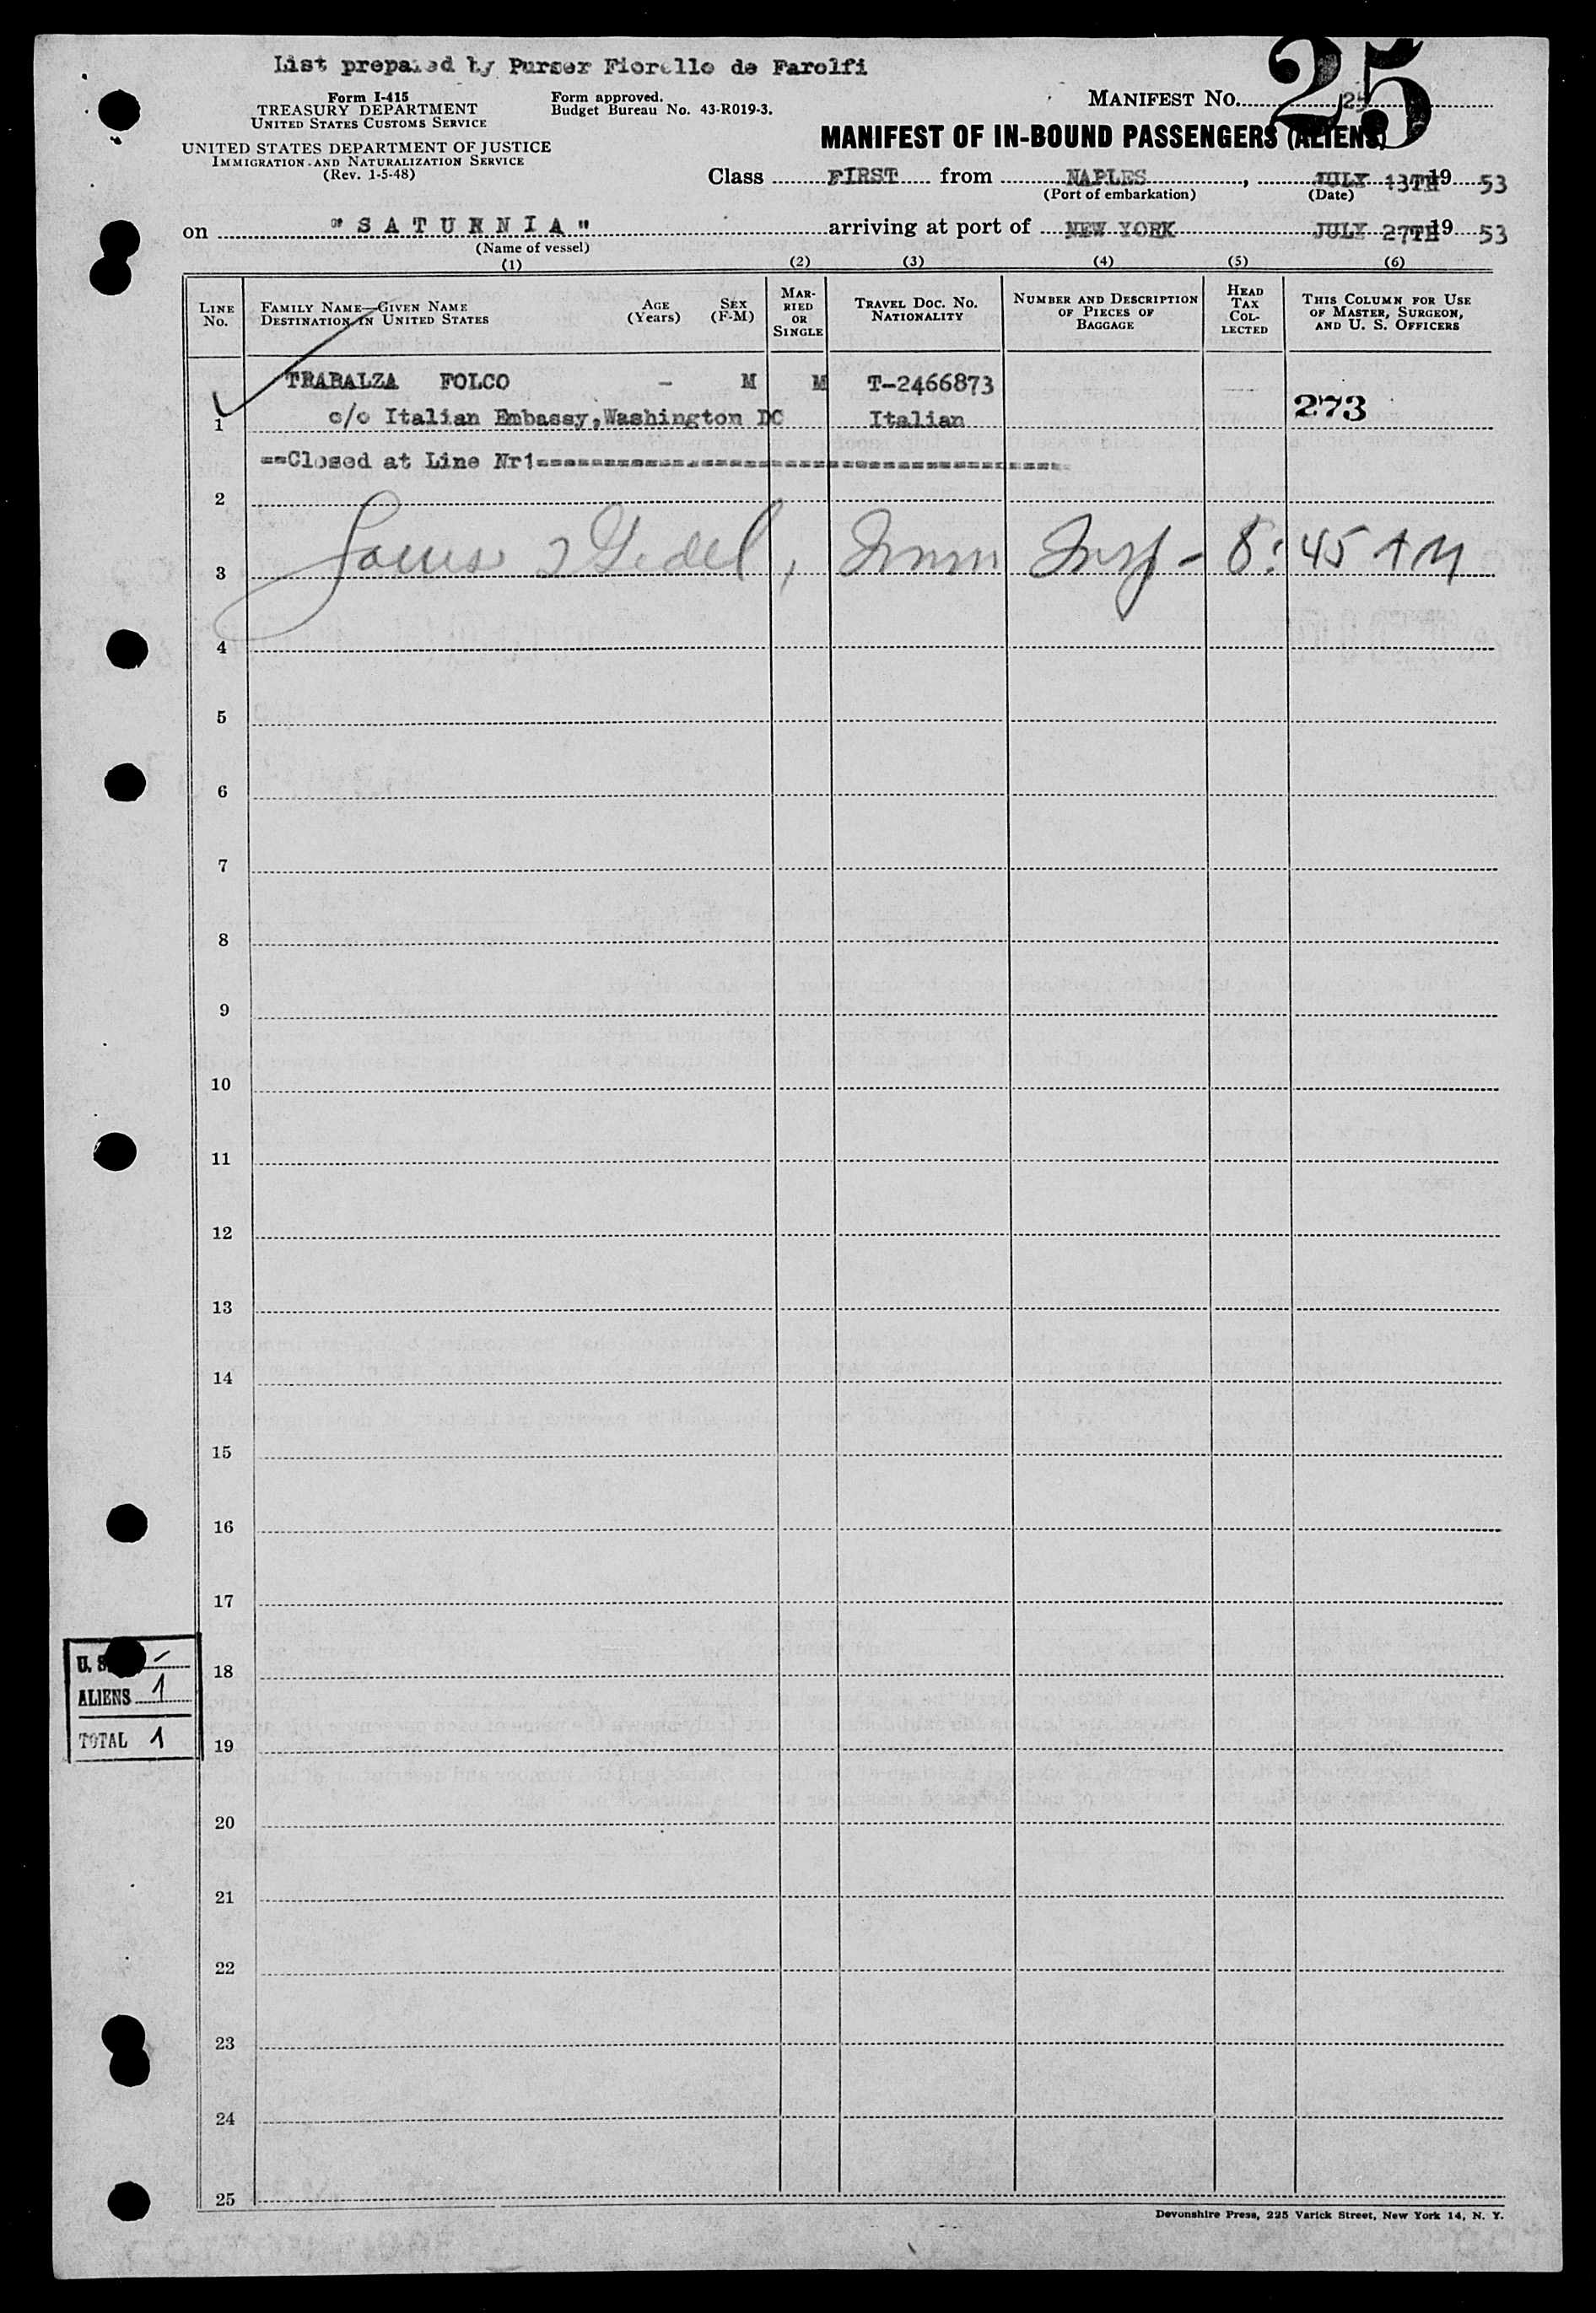 List prepared by Purser Fiorello de Farolfi
25
Form I-415
TREASURY DEPARTMENT
UNITED STATES CUSTOMS SERVICE
UNITED STATES DEPARTMENT OF JUSTICE
IMMIGRATION AND NATURALIZATION SERVICE
(Rev. 1-5-48)
Form approved.
Budget Bureau No. 43-R019-3.
MANIFEST NO. 25
MANIFEST OF IN-BOUND PASSENGERS (ALIENS)
Class FIRST from NAPLES, JULY 13TH 19 53
(Port of embarkation) (Date)
on "SATURNIA" arriving at port of NEW YORK JULY 27TH 19 53
(Name of vessel)
(1) (2) (3) (4) (5) (6)
LINE NO.
FAMILY NAME—GIVEN NAME
DESTINATION IN UNITED STATES
AGE (Years)
SEX (F-M)
MARRIED OR SINGLE
TRAVEL DOC. NO. NATIONALITY
NUMBER AND DESCRIPTION OF PIECES OF BAGGAGE
HEAD TAX COLLECTED
THIS COLUMN FOR USE OF MASTER, SURGEON, AND U. S. OFFICERS
TRABALZA FOLCO - M M T-2466873
1 c/o Italian Embassy, Washington DC Italian 273
==Closed at Line Nr1==
2
3 Imm Insp - 8:45 AM
4
5
6
7
8
9
10
11
12
13
14
15
16
17
18
19
20
21
22
23
24
25
U. S. -
ALIENS 1
TOTAL 1
Devonshire Press, 225 Varick Street, New York 14, N. Y.